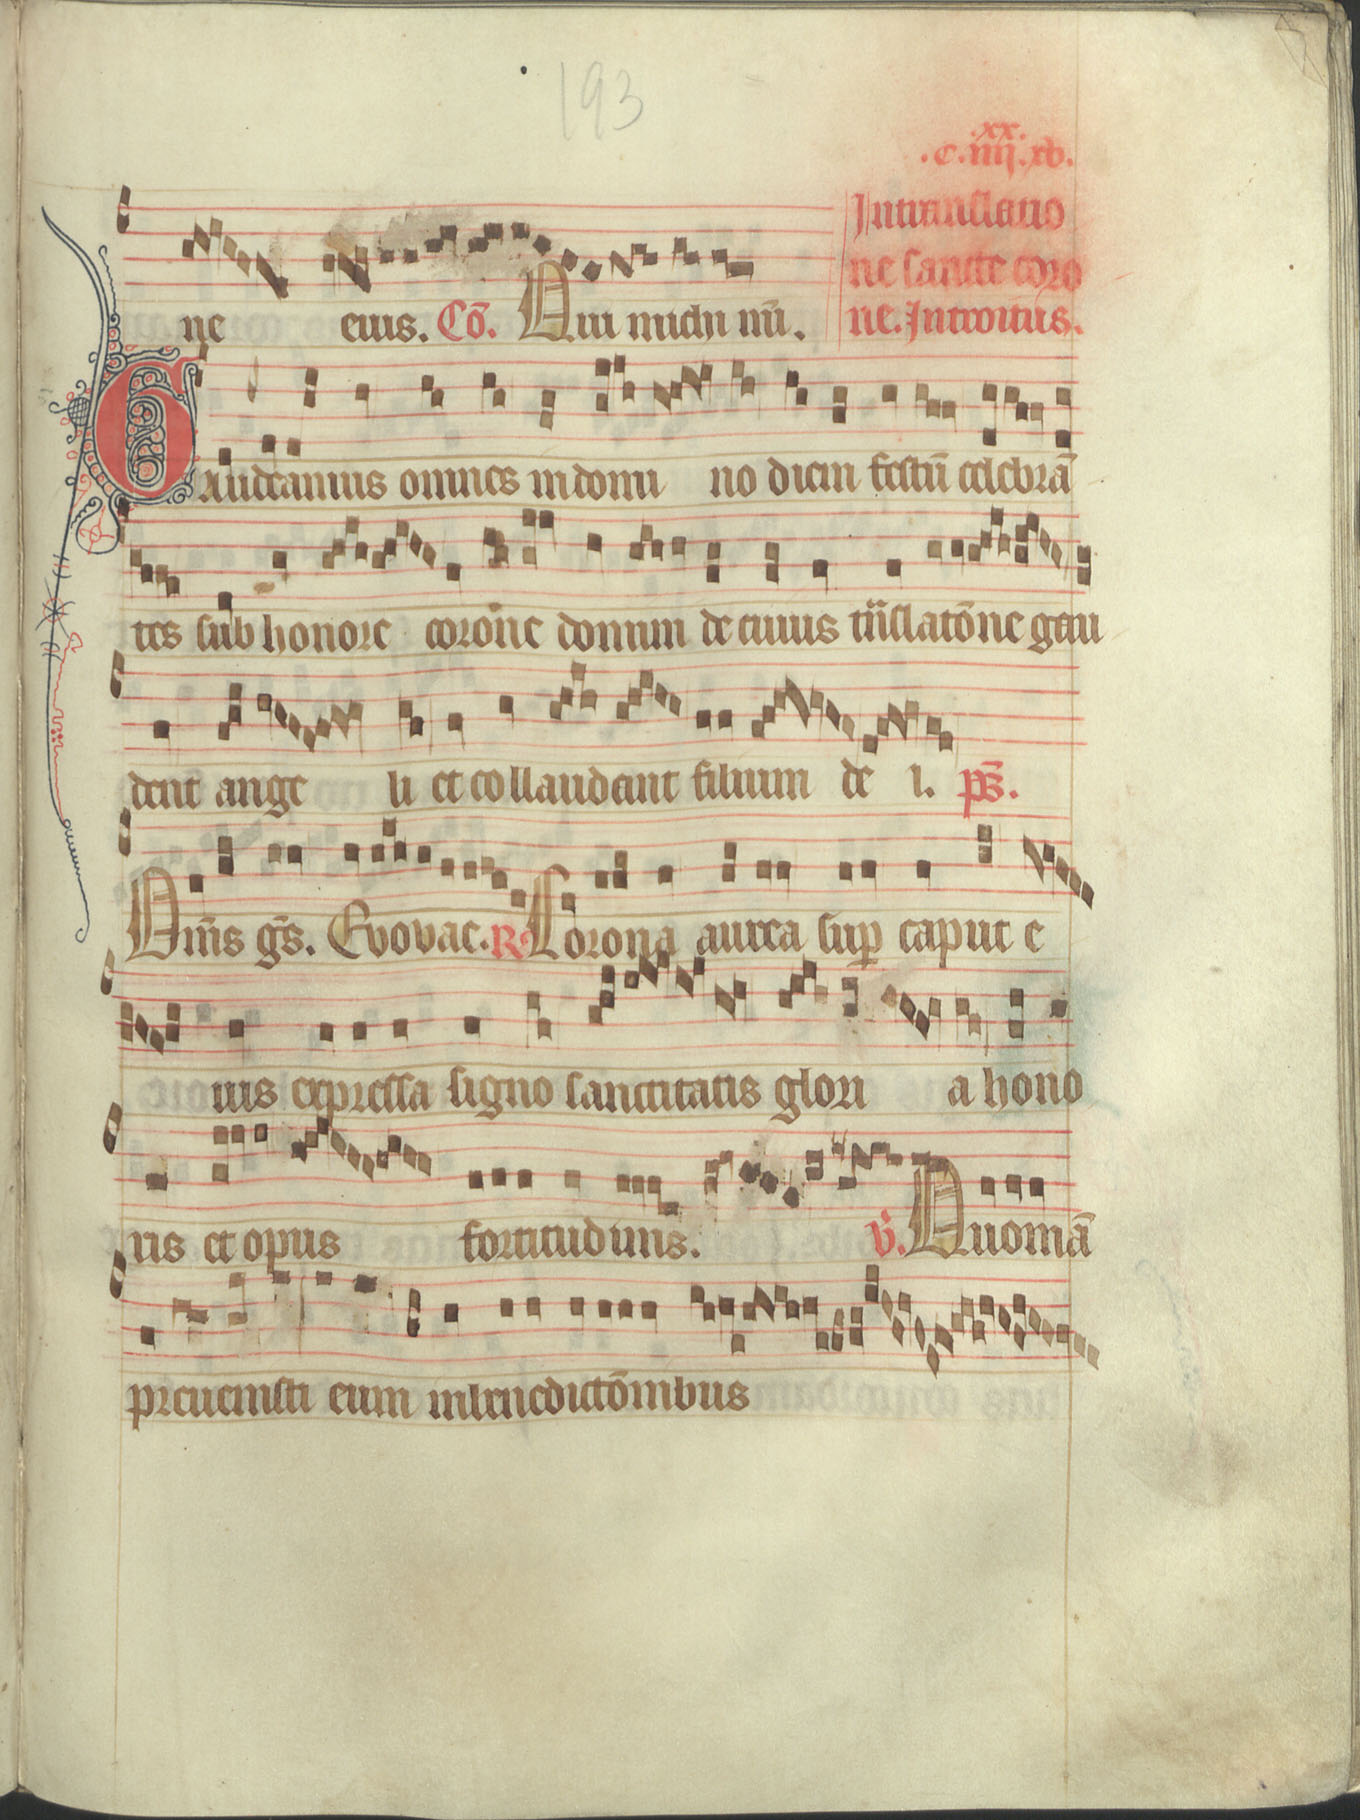 193
.xx.
.c.iiij.xv.
In translatio
ne sancte coro
ne. Introitus.
ne eius. Cō. Qui michi mi̅.
Gaudeamus omnes in domi no diem festū celebrā
tes sub honore corōne domini de cuius tn̄slatōne gau
dent ange li et collaudant filium de i. ps̄.
Dm̄s gs̄. Evovae. R Corona aurea sup caput e
ius expressa signo sanctitatis glori a hono
ris et opus fortitudinis. v̄. Quoniā
preuenisti eum in benedictōnibus